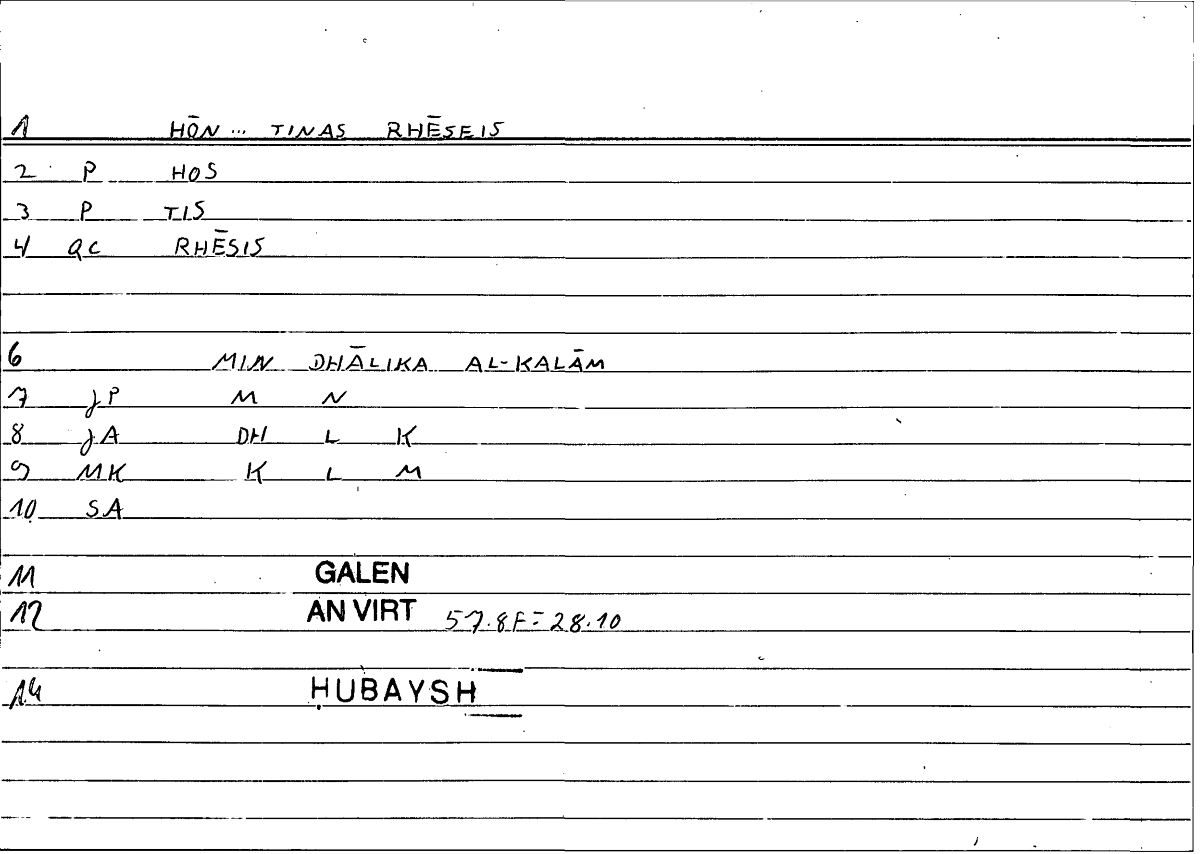 1 HŌN ... TINAS RHĒSEIS
2 P HOS
3 P TIS
4 QC RHĒSIS
6 MIN DHĀLIKA AL-KALĀM
7 JP M N
8 JA DH L K
9 MK K L M
10 SA
11 GALEN
12 AN VIRT 57.8F=28.10
14 ḤUBAYSH